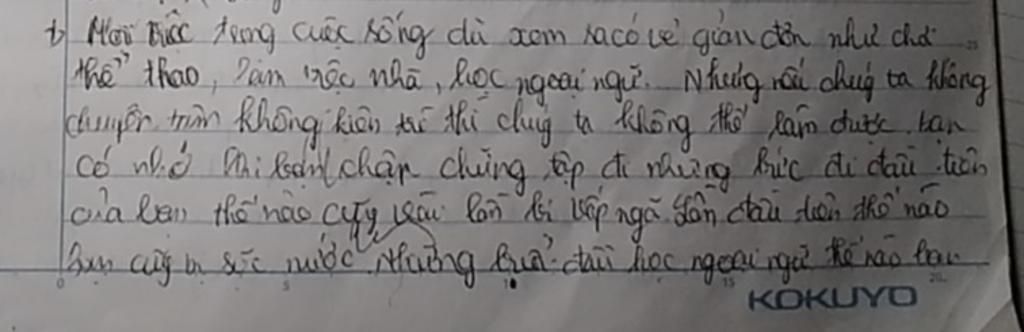 b) Mọi việc trong cuộc sống dù xem ra có vẻ giản đơn như chơi
thể thao, làm việc nhà, học ngoại ngữ. Nhưng nếu chúng ta không
chuyên tâm không kiên trì thì chúng ta không thể làm được. bạn
có nhớ khi bạn chập chững tập đi những bước đi đầu tiên
của bạn thế nào cũng vài lần bị vấp ngã lần đầu tiên thế nào
bạn cũng bị sặc nước. Những buổi đầu học ngoại ngữ thế nào bạn
KOKUYO